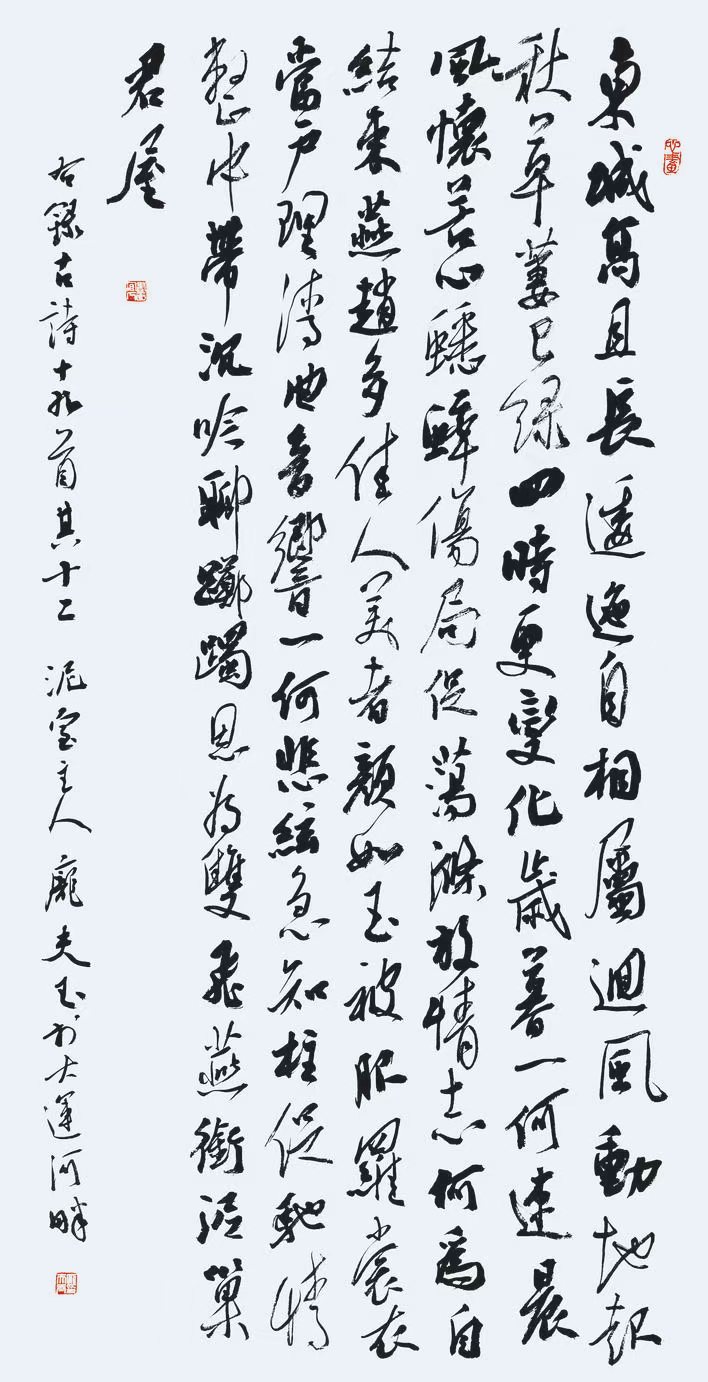 心畫
東城高且長逶迤自相屬迴風動地起
秋草萋已緑四時更變化歲暮一何速晨
風懷苦心蟋蟀傷局促蕩滌放情志何為自
結束燕趙多佳人美者顏如玉被服羅裳衣
當户理清曲音響一何悲絃急知柱促馳情
整中帶沉吟聊躑躅思為雙飛燕銜泥巢
君屋
右錄古詩十九首其十二 泥室主人龐夫玉大運河畔